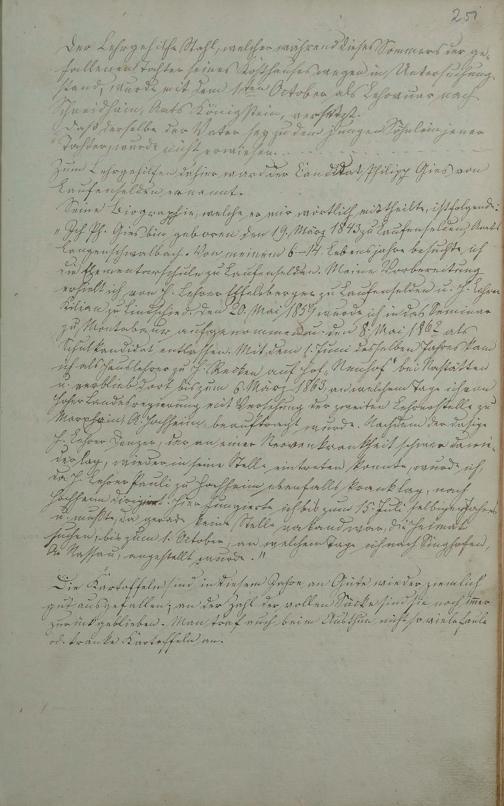 251
Der Lehrgehilfe Stahl, welcher während dieses Sommers der ge-
fallenen Tochter seines Kosthauses wegen in Untersuchung
stand, wurde mit dem 1ten October als Lehrvicar nach
Schneidhain, Amts Königstein, versetzt.
Daß derselbe der Vater sey zu dem jungen Schulin jener
Tochter, wurde nicht erwiesen.
Zum Lehrgehilfen dahier ward der Candidat Philipp Gies von
Laufenselden ernannt.
Seine Biographie, welche er mir wörtlich mittheilte, ist folgende:
"Joh. Ph. Gies bin geboren den 19. März 1843 zu Laufenselden, Amts
Langenschwalbach. Von meinem 6–14. Lebensjahre besuchte ich
die Elementarschule zu Laufenselden. Meine Vorbereitung
erhielt ich von H. Lehrer zu Laufenselden u. H. Lehrer
Kilian zu den 20. Mai 1859 wurde ich in das Seminar
zu Montabaur aufgenommen u. den 8. Mai 1862 als
Schulkandidat entlassen. Mit dem 1. Juni desselben Jahres kam
ich als Hauslehrer zu H. auf Hof bei Nastätten
u. verblieb dort bis zum 6. März 1863 an welchem Tage ich von
Hoher Landesregierung mit Versehung der zweiten Lehrerstelle zu
A. Hochheim, beauftragt wurde. Nachdem der dasige
H. Lehrer der an einer Nervenkrankheit schwer darnie-
derlag, wieder in seine Stelle eintreten konnte, wurde ich,
da H. Lehrer Pauli zu Hochheim ebenfalls krank lag, nach
Hochheim dirigirt. Hier fungierte ich bis zum 15. Juli selbigen Jahres
u. mußte, da gerade keine Stelle vakant war, die Heimat
suchen, bis zum 1. October, an welchem Tage ich nach Singhofen,
A. Nassau, angestellt wurde."
Die Kartoffeln sind in diesem Jahre an Güte wieder ziemlich
gut ausgefallen; an der Zahl der vollen Säcke sind sie noch immer
zurückgeblieben. Man traf auch beim Austhun nicht so viele faule
od. kranke Kartoffeln an.